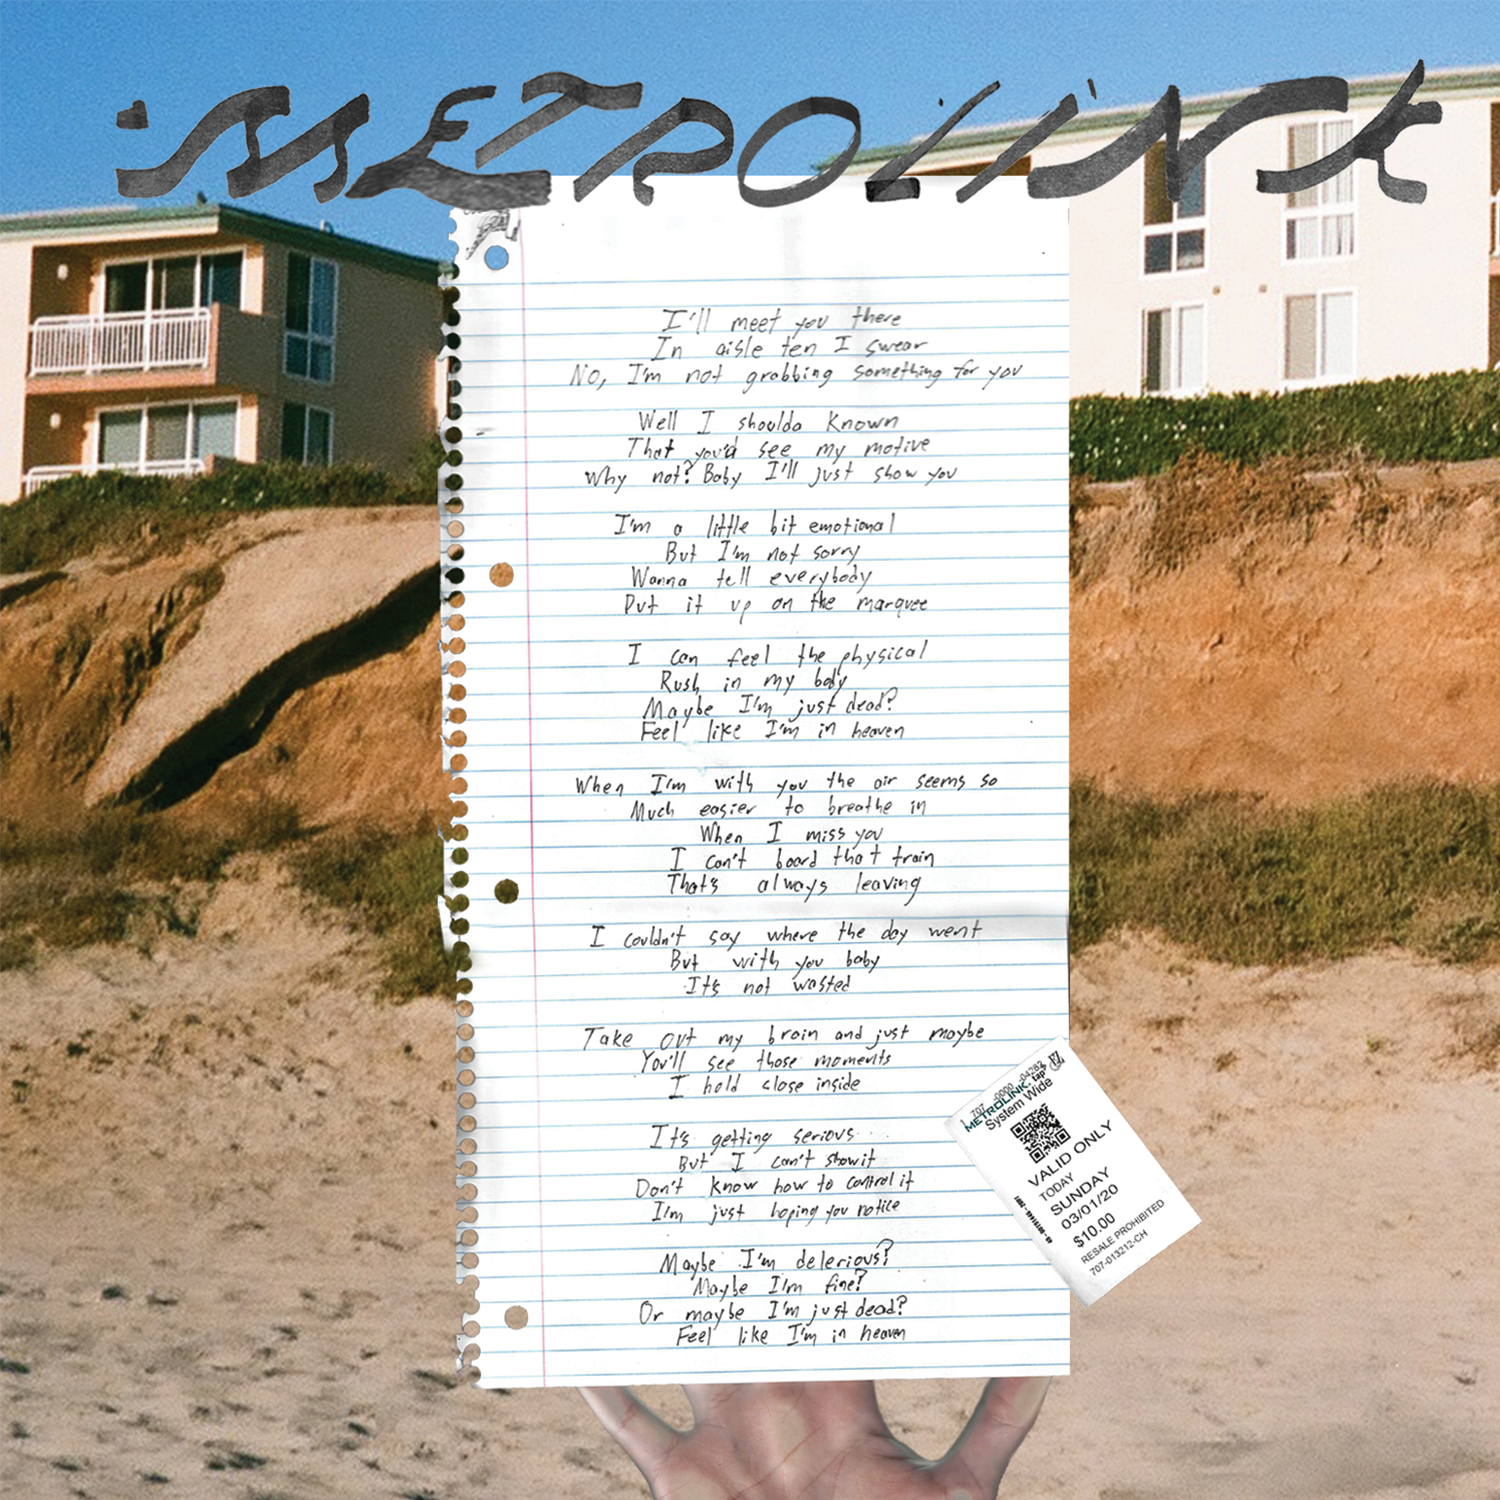 METROLINK
I'll meet you there
In aisle ten I swear
No, I'm not grabbing something for you
Well I shoulda known
That you'd see my motive
Why not? Baby I'll just show you
I'm a little bit emotional
But I'm not sorry
Wanna tell everybody
Put it up on the marquee
I can feel the physical
Rush in my body
Maybe I'm just dead?
Feel like I'm in heaven
When I'm with you the air seems so
Much easier to breathe in
When I miss you
I can't board that train
That's always leaving
I couldn't say where the day went
But with you baby
It's not wasted
Take out my brain and just maybe
You'll see those moments
I hold close inside
It's getting serious
But I can't show it
Don't know how to control it
I'm just hoping you notice
Maybe I'm delerious?
Maybe I'm fine?
Or maybe I'm just dead?
Feel like I'm in heaven
METROLINK. tap
System Wide
VALID ONLY
TODAY
SUNDAY
03/01/20
$10.00
RESALE PROHIBITED
707-013212-CH